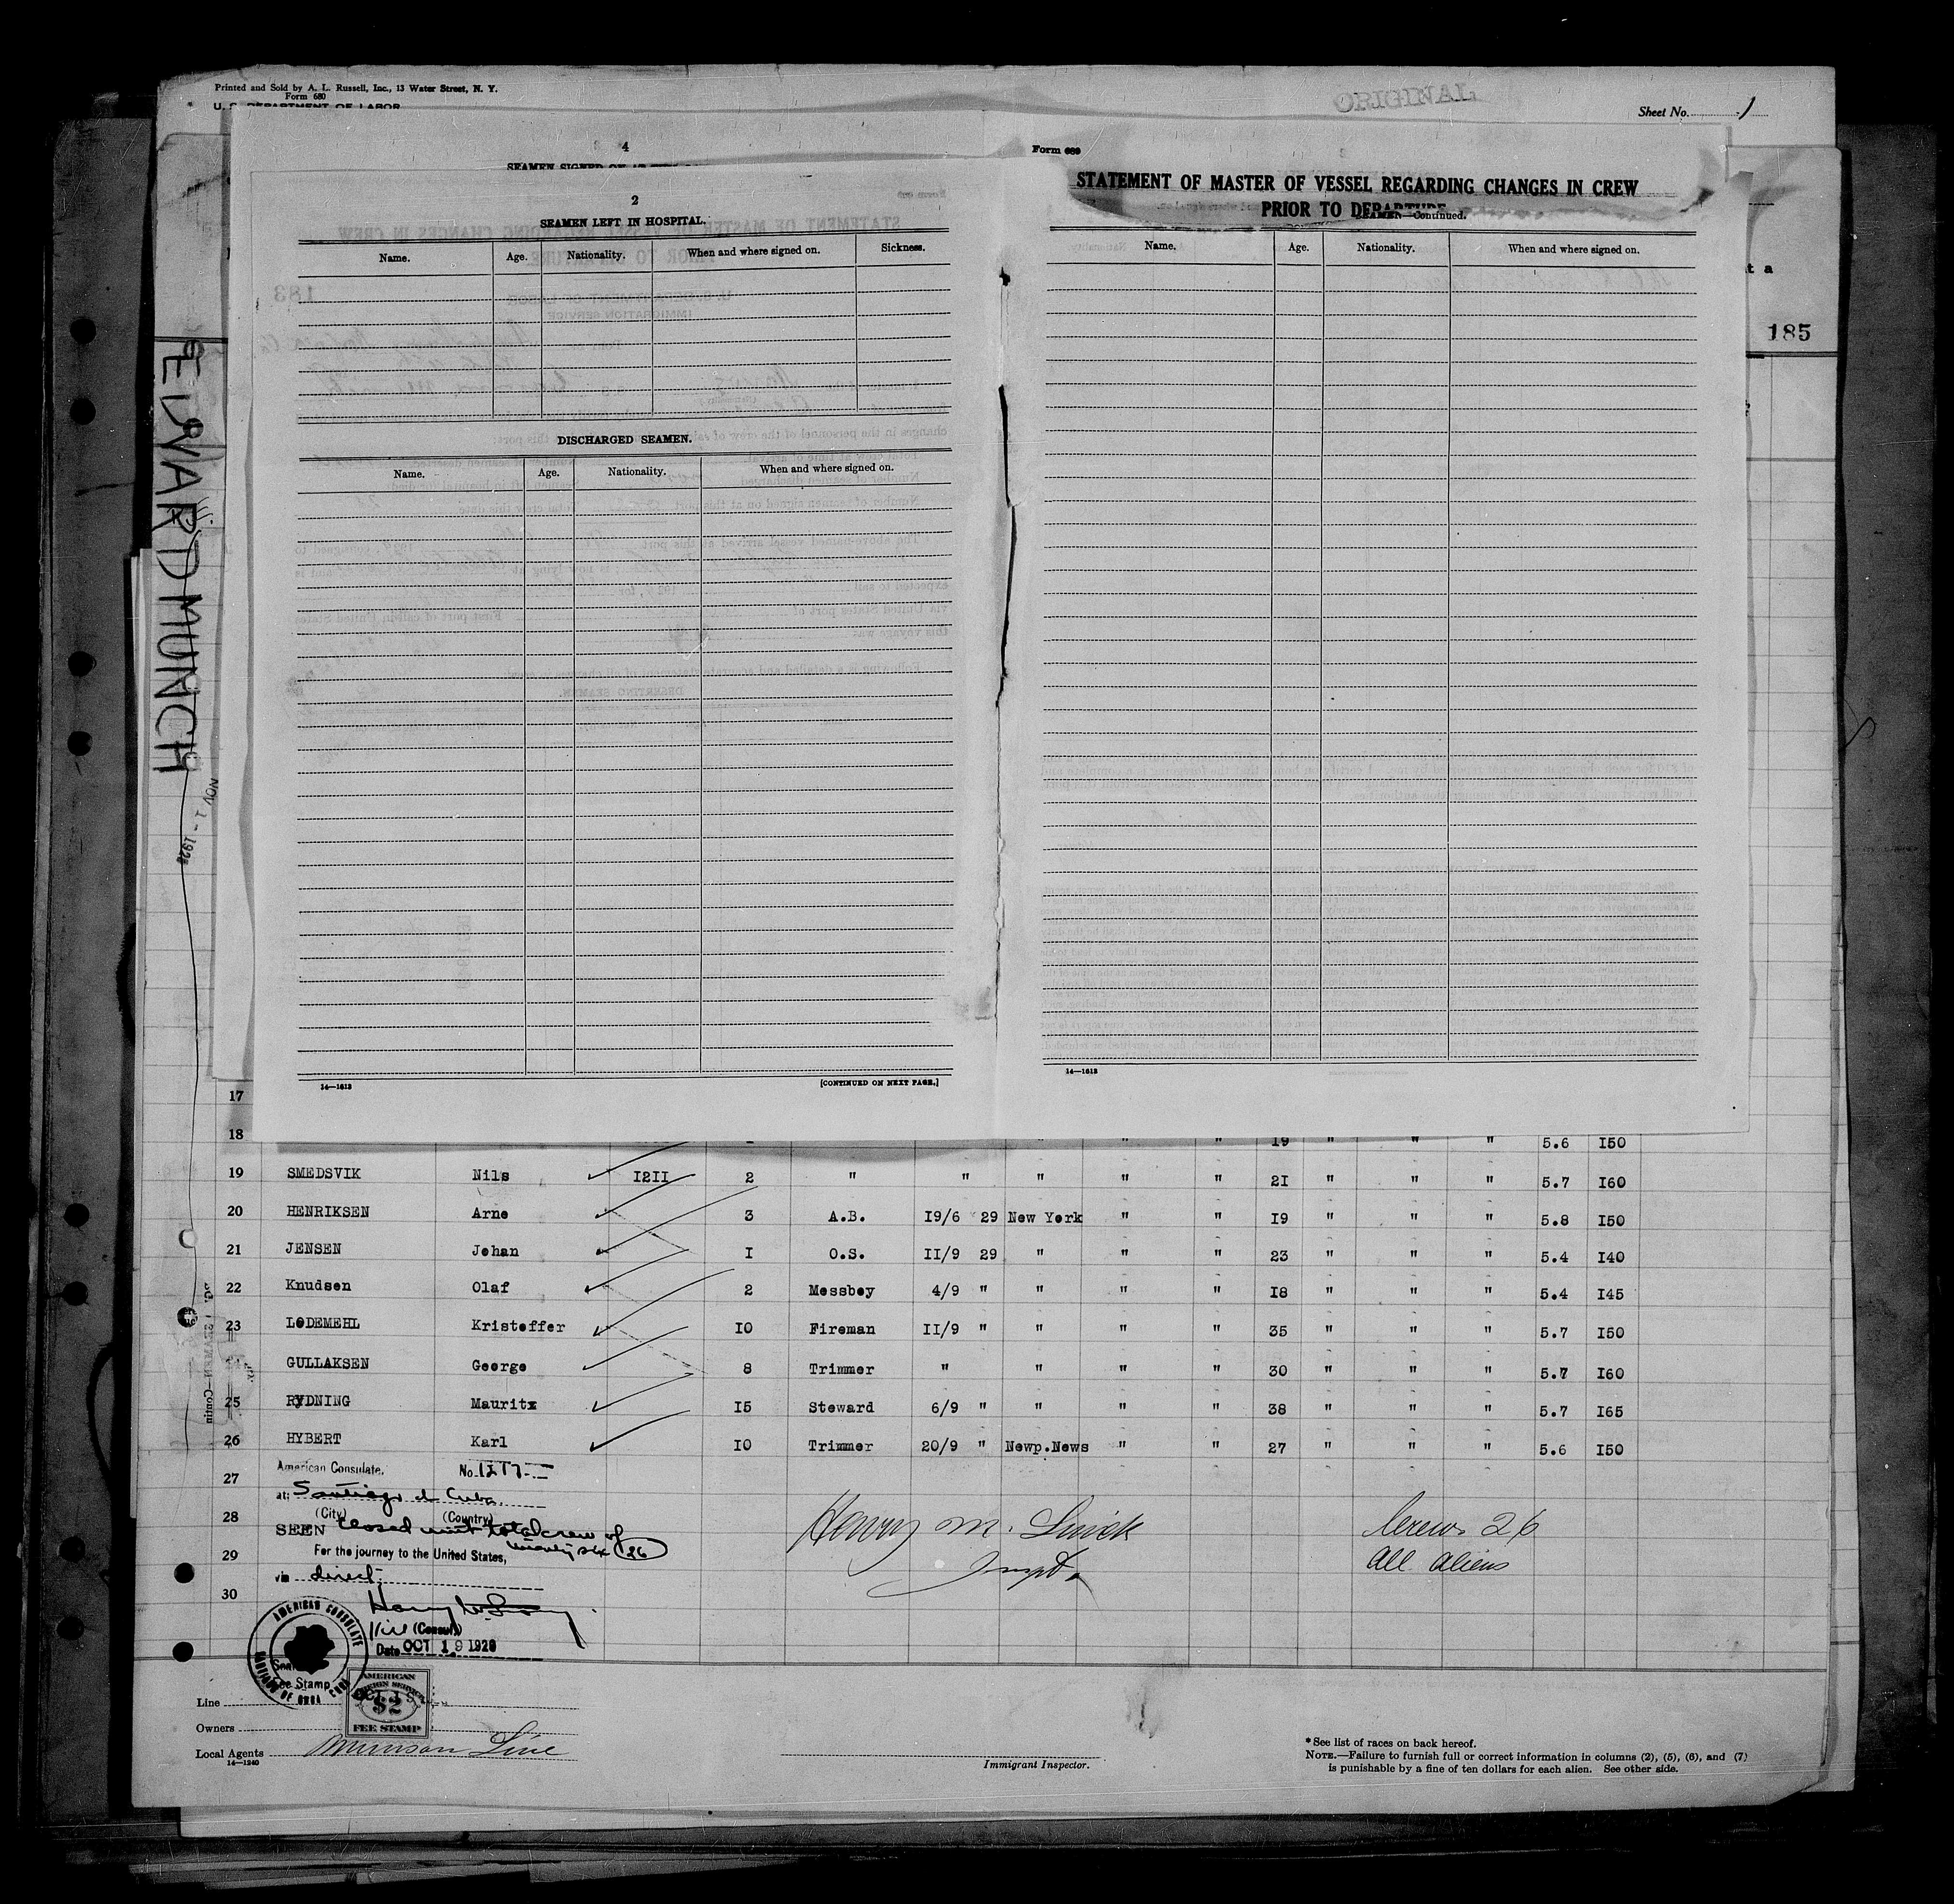 Printed and Sold by A. L. Russell, Inc., 13 Water Street, N. Y.
Form 680
U. S. DEPARTMENT OF LABOR
ORIGINAL
Sheet No. 1
4
2
SEAMEN LEFT IN HOSPITAL.
Name. Age. Nationality. When and where signed on. Sickness.
DISCHARGED SEAMEN.
Name. Age. Nationality. When and where signed on.
14—1613
[CONTINUED ON NEXT PAGE.]
Form 689
STATEMENT OF MASTER OF VESSEL REGARDING CHANGES IN CREW
PRIOR TO DEPARTURE
SEAMEN—Continued.
Name. Age. Nationality. When and where signed on.
14—1613
t a
185
EDVARD MUNCH
NOV 1 - 1929
17
18 19 " " " 5.6 I50
19 SMEDSVIK Nils I2II 2 " " " " " 2I " " " 5.7 I60
20 HENRIKSEN Arne 3 A.B. I9/6 29 New York " " I9 " " " 5.8 I50
21 JENSEN Johan I O.S. II/9 29 " " " 23 " " " 5.4 I40
22 Knudsen Olaf 2 Messboy 4/9 " " " " I8 " " " 5.4 I45
23 LODEMEHL Kristoffer IO Fireman II/9 " " " " 35 " " " 5.7 I50
24 GULLAKSEN George 8 Trimmer " " " " 30 " " " 5.7 I60
25 RYDNING Mauritz I5 Steward 6/9 " " " " 38 " " " 5.7 I65
26 HYBERT Karl IO Trimmer 20/9 " Newp.News " " 27 " " " 5.6 I50
27
28
29
30
American Consulate.
No.
at: Santiago de Cuba.
(City) (Country)
SEEN closed with total crew of
twenty six (26)
For the journey to the United States,
via direct.
(Consul)
Date OCT 19 1929
AMERICAN CONSULATE
SANTIAGO DE CUBA CUBA
Fee Stamp
AMERICAN
FOREIGN SERVICE
$2
FEE STAMP
Henry M.
Inspt.
Crew 26
All aliens
Line
Owners
Local Agents Munson Line
14—1240
Immigrant Inspector.
* See list of races on back hereof.
NOTE.—Failure to furnish full or correct information in columns (2), (5), (6), and (7)
is punishable by a fine of ten dollars for each alien. See other side.